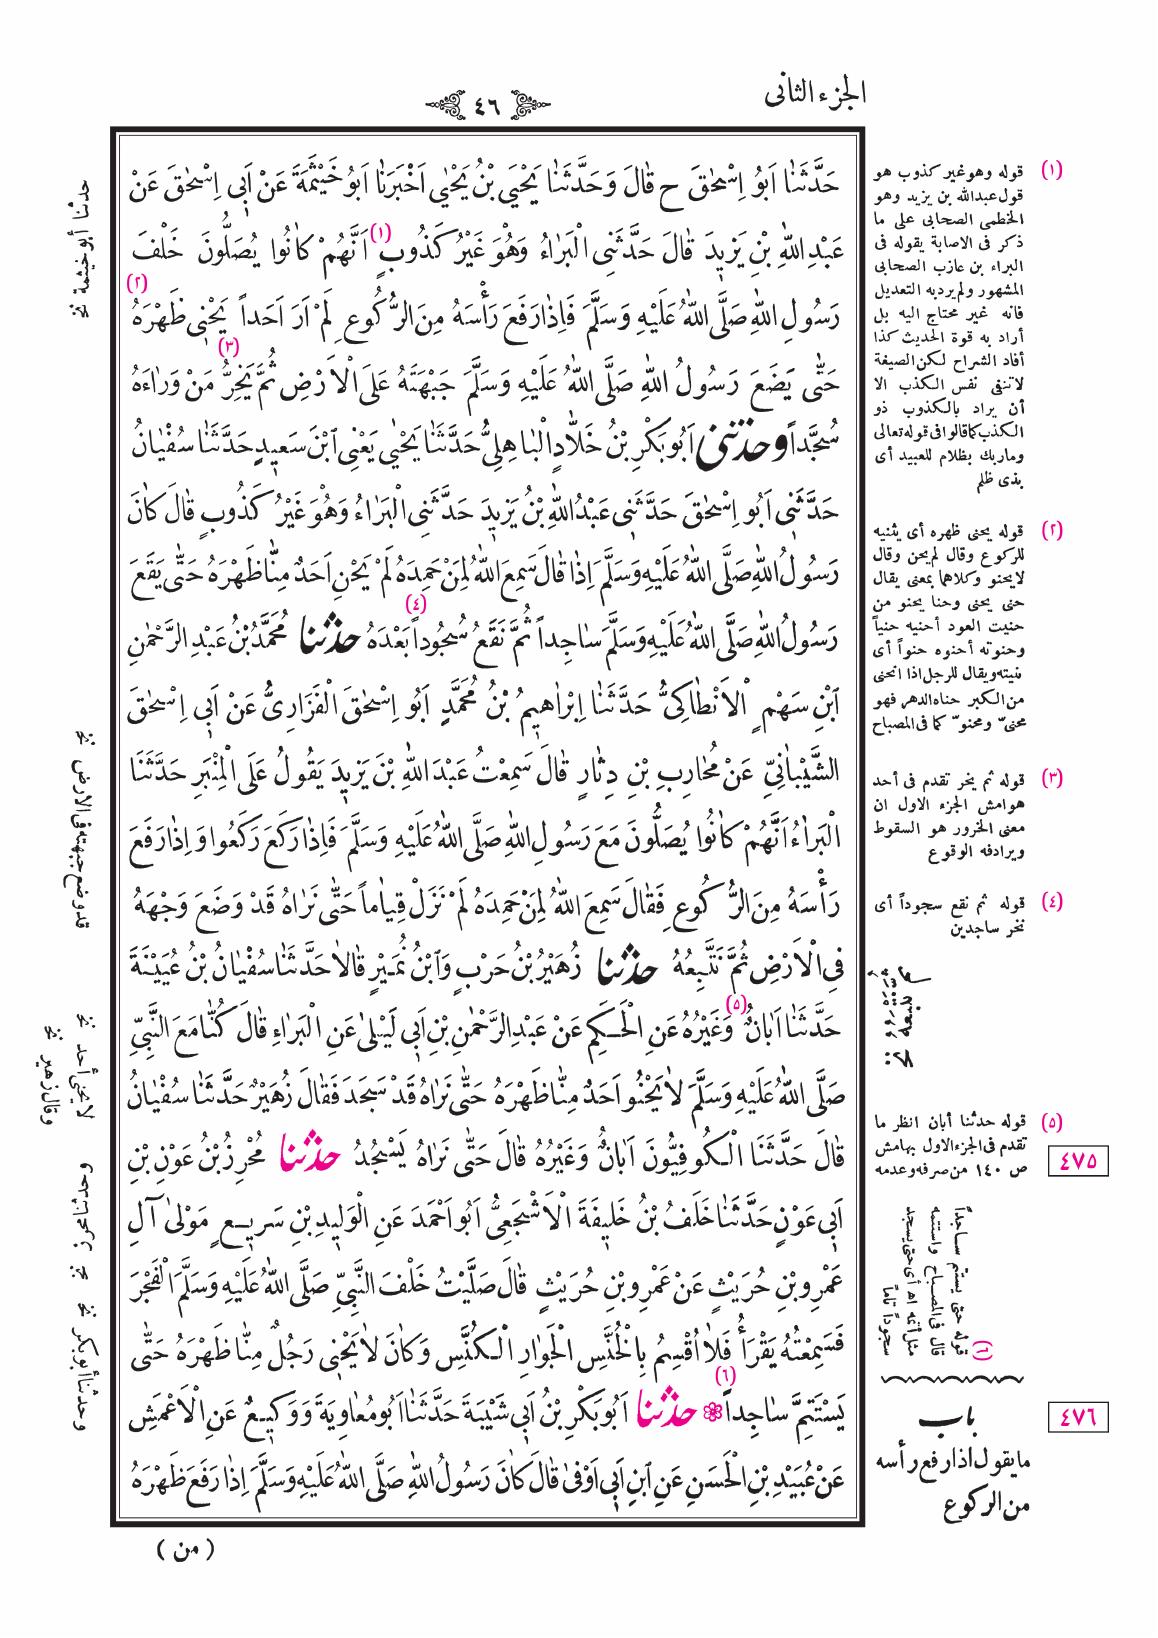 الجزء الثانى
٤٦
حَدَّثَنٰا اَبُو اِسْحٰقَ ح قٰالَ وَحَدَّثَنٰا يَحْيَى بْنُ يَحْيٰى اَخْبَرَنٰا اَبُو خَيْثَمَةَ عَنْ اَبِى اِسْحٰقَ عَنْ
عَبْدِ اللّٰهِ بْنِ يَزِيدَ قٰالَ حَدَّثَنِى الْبَرٰاءُ وَهُوَ غَيْرُ كَذُوبٍ (١) اَنَّهُمْ كٰانُوا يُصَلُّونَ خَلْفَ
رَسُولِ اللّٰهِ صَلَّى اللّٰهُ عَلَيْهِ وَسَلَّمَ فَاِذٰا رَفَعَ رَأْسَهُ مِنَ الرُّكُوعِ لَمْ اَرَ اَحَداً يَحْنِى ظَهْرَهُ (٢)
حَتّٰى يَضَعَ رَسُولُ اللّٰهِ صَلَّى اللّٰهُ عَلَيْهِ وَسَلَّمَ جَبْهَتَهُ عَلَى الْاَرْضِ ثُمَّ يَخِرُّ (٣) مَنْ وَرٰاءَهُ
سُجَّداً وحدثنى اَبُو بَكْرِ بْنُ خَلّٰادٍ الْبٰاهِلِىُّ حَدَّثَنٰا يَحْيٰى يَعْنِى ابْنَ سَعِيدٍ حَدَّثَنٰا سُفْيٰانُ
حَدَّثَنِى اَبُو اِسْحٰقَ حَدَّثَنِى عَبْدُ اللّٰهِ بْنُ يَزِيدَ حَدَّثَنِى الْبَرٰاءُ وَهُوَ غَيْرُ كَذُوبٍ قٰالَ كٰانَ
رَسُولُ اللّٰهِ صَلَّى اللّٰهُ عَلَيْهِ وَسَلَّمَ اِذٰا قٰالَ سَمِعَ اللّٰهُ لِمَنْ حَمِدَهُ لَمْ يَحْنِ اَحَدٌ مِنّٰا ظَهْرَهُ حَتّٰى يَقَعَ
رَسُولُ اللّٰهِ صَلَّى اللّٰهُ عَلَيْهِ وَسَلَّمَ سٰاجِداً ثُمَّ نَقَعُ سُجُوداً (٤) بَعْدَهُ حدثنا مُحَمَّدُ بْنُ عَبْدِ الرَّحْمٰنِ
ابْنِ سَهْمٍ الْاَنْطٰاكِىُّ حَدَّثَنٰا اِبْرٰاهِيمُ بْنُ مُحَمَّدٍ اَبُو اِسْحٰقَ الْفَزٰارِىُّ عَنْ اَبِى اِسْحٰقَ
الشَّيْبٰانِىِّ عَنْ مُحٰارِبِ بْنِ دِثٰارٍ قٰالَ سَمِعْتُ عَبْدَ اللّٰهِ بْنَ يَزِيدَ يَقُولُ عَلَى الْمِنْبَرِ حَدَّثَنَا
الْبَرٰاءُ اَنَّهُمْ كٰانُوا يُصَلُّونَ مَعَ رَسُولِ اللّٰهِ صَلَّى اللّٰهُ عَلَيْهِ وَسَلَّمَ فَاِذٰا رَكَعَ رَكَعُوا وَاِذٰا رَفَعَ
رَأْسَهُ مِنَ الرُّكُوعِ فَقٰالَ سَمِعَ اللّٰهُ لِمَنْ حَمِدَهُ لَمْ نَزَلْ قِيٰاماً حَتّٰى نَرٰاهُ قَدْ وَضَعَ وَجْهَهُ
فِى الْاَرْضِ ثُمَّ نَتَّبِعُهُ حدثنا زُهَيْرُ بْنُ حَرْبٍ وَابْنُ نُمَيْرٍ قٰالاٰ حَدَّثَنٰا سُفْيٰانُ بْنُ عُيَيْنَةَ
حَدَّثَنٰا اَبٰانٌ (٥) وَغَيْرُهُ عَنِ الْحَكَمِ عَنْ عَبْدِ الرَّحْمٰنِ بْنِ اَبِى لَيْلىٰ عَنِ الْبَرٰاءِ قٰالَ كُنّٰا مَعَ النَّبِىِّ
صَلَّى اللّٰهُ عَلَيْهِ وَسَلَّمَ لاٰ يَحْنُو اَحَدٌ مِنّٰا ظَهْرَهُ حَتّٰى نَرٰاهُ قَدْ سَجَدَ فَقٰالَ زُهَيْرٌ حَدَّثَنٰا سُفْيٰانُ
قٰالَ حَدَّثَنَا الْكُوفِيُّونَ اَبٰانٌ وَغَيْرُهُ قٰالَ حَتّٰى نَرٰاهُ يَسْجُدُ حدثنا مُحْرِزُ بْنُ عَوْنِ بْنِ
اَبِى عَوْنٍ حَدَّثَنٰا خَلَفُ بْنُ خَلِيفَةَ الْاَشْجَعِىُّ اَبُو اَحْمَدَ عَنِ الْوَلِيدِ بْنِ سَرِيعٍ مَوْلىٰ آلِ
عَمْرِو بْنِ حُرَيْثٍ عَنْ عَمْرِو بْنِ حُرَيْثٍ قٰالَ صَلَّيْتُ خَلْفَ النَّبِىِّ صَلَّى اللّٰهُ عَلَيْهِ وَسَلَّمَ الْفَجْرَ
فَسَمِعْتُهُ يَقْرَأُ فَلاٰ اُقْسِمُ بِالْخُنَّسِ الْجَوٰارِ الْكُنَّسِ وَكٰانَ لاٰ يَحْنِى رَجُلٌ مِنّٰا ظَهْرَهُ حَتّٰى
يَسْتَتِمَّ سٰاجِداً (٦) حدثنا اَبُو بَكْرِ بْنُ اَبِى شَيْبَةَ حَدَّثَنٰا اَبُو مُعٰاوِيَةَ وَوَكِيعٌ عَنِ الْاَعْمَشِ
عَنْ عُبَيْدِ بْنِ الْحَسَنِ عَنِ ابْنِ اَبِى اَوْفىٰ قٰالَ كٰانَ رَسُولُ اللّٰهِ صَلَّى اللّٰهُ عَلَيْهِ وَسَلَّمَ اِذٰا رَفَعَ ظَهْرَهُ
( من )
(١) قوله وهو غير كذوب هو
قول عبدالله بن يزيد وهو
الخطمى الصحابى على ما
ذكر فى الاصابة يقوله فى
البراء بن عازب الصحابى
المشهور ولم يرد به التعديل
فانه غير محتاج اليه بل
أراد به قوة الحديث كذا
أفاد الشراح لكن الصيغة
لا تنفى نفس الكذب الا
أن يراد بالكذوب ذو
الكذب كما قالوا فى قوله تعالى
وما ربك بظلام للعبيد أى
بذى ظلم
(٢) قوله يحنى ظهره أى يثنيه
للركوع وقال لم يحن وقال
لا يحنو وكلاهما بمعنى يقال
حنى يحنى وحنا يحنو من
حنيت العود أحنيه حنياً
وحنوته أحنوه حنواً أى
ثنيته ويقال للرجل اذا انحنى
من الكبر حناه الدهر فهو
محنىّ ومحنوّ كما فى المصباح
(٣) قوله ثم يخر تقدم فى أحد
هوامش الجزء الاول ان
معنى الخرور هو السقوط
ويرادفه الوقوع
(٤) قوله ثم نقع سجوداً أى
نخر ساجدين
(٥) قوله حدثنا أبان انظر ما
تقدم فى الجزء الاول بهامش
ص ١٤٠ من صرفه وعدمه
٤٧٥
(٦) قوله حتى يستتم ساجداً
قال فى المصباح واستتمه
مثل أتمه اه أى حتى يسجد
سجوداً تاماً
٤٧٦
باب
ما يقول اذا رفع رأسه
من الركوع
حدثنا أبو خيثمة نخ
قد وضع جبهته فى الارض نخ
لا يحنى أحد نخ
وقال زهير نخ
وحدثنا محرز نخ
وحدثنا أبو بكر نخ